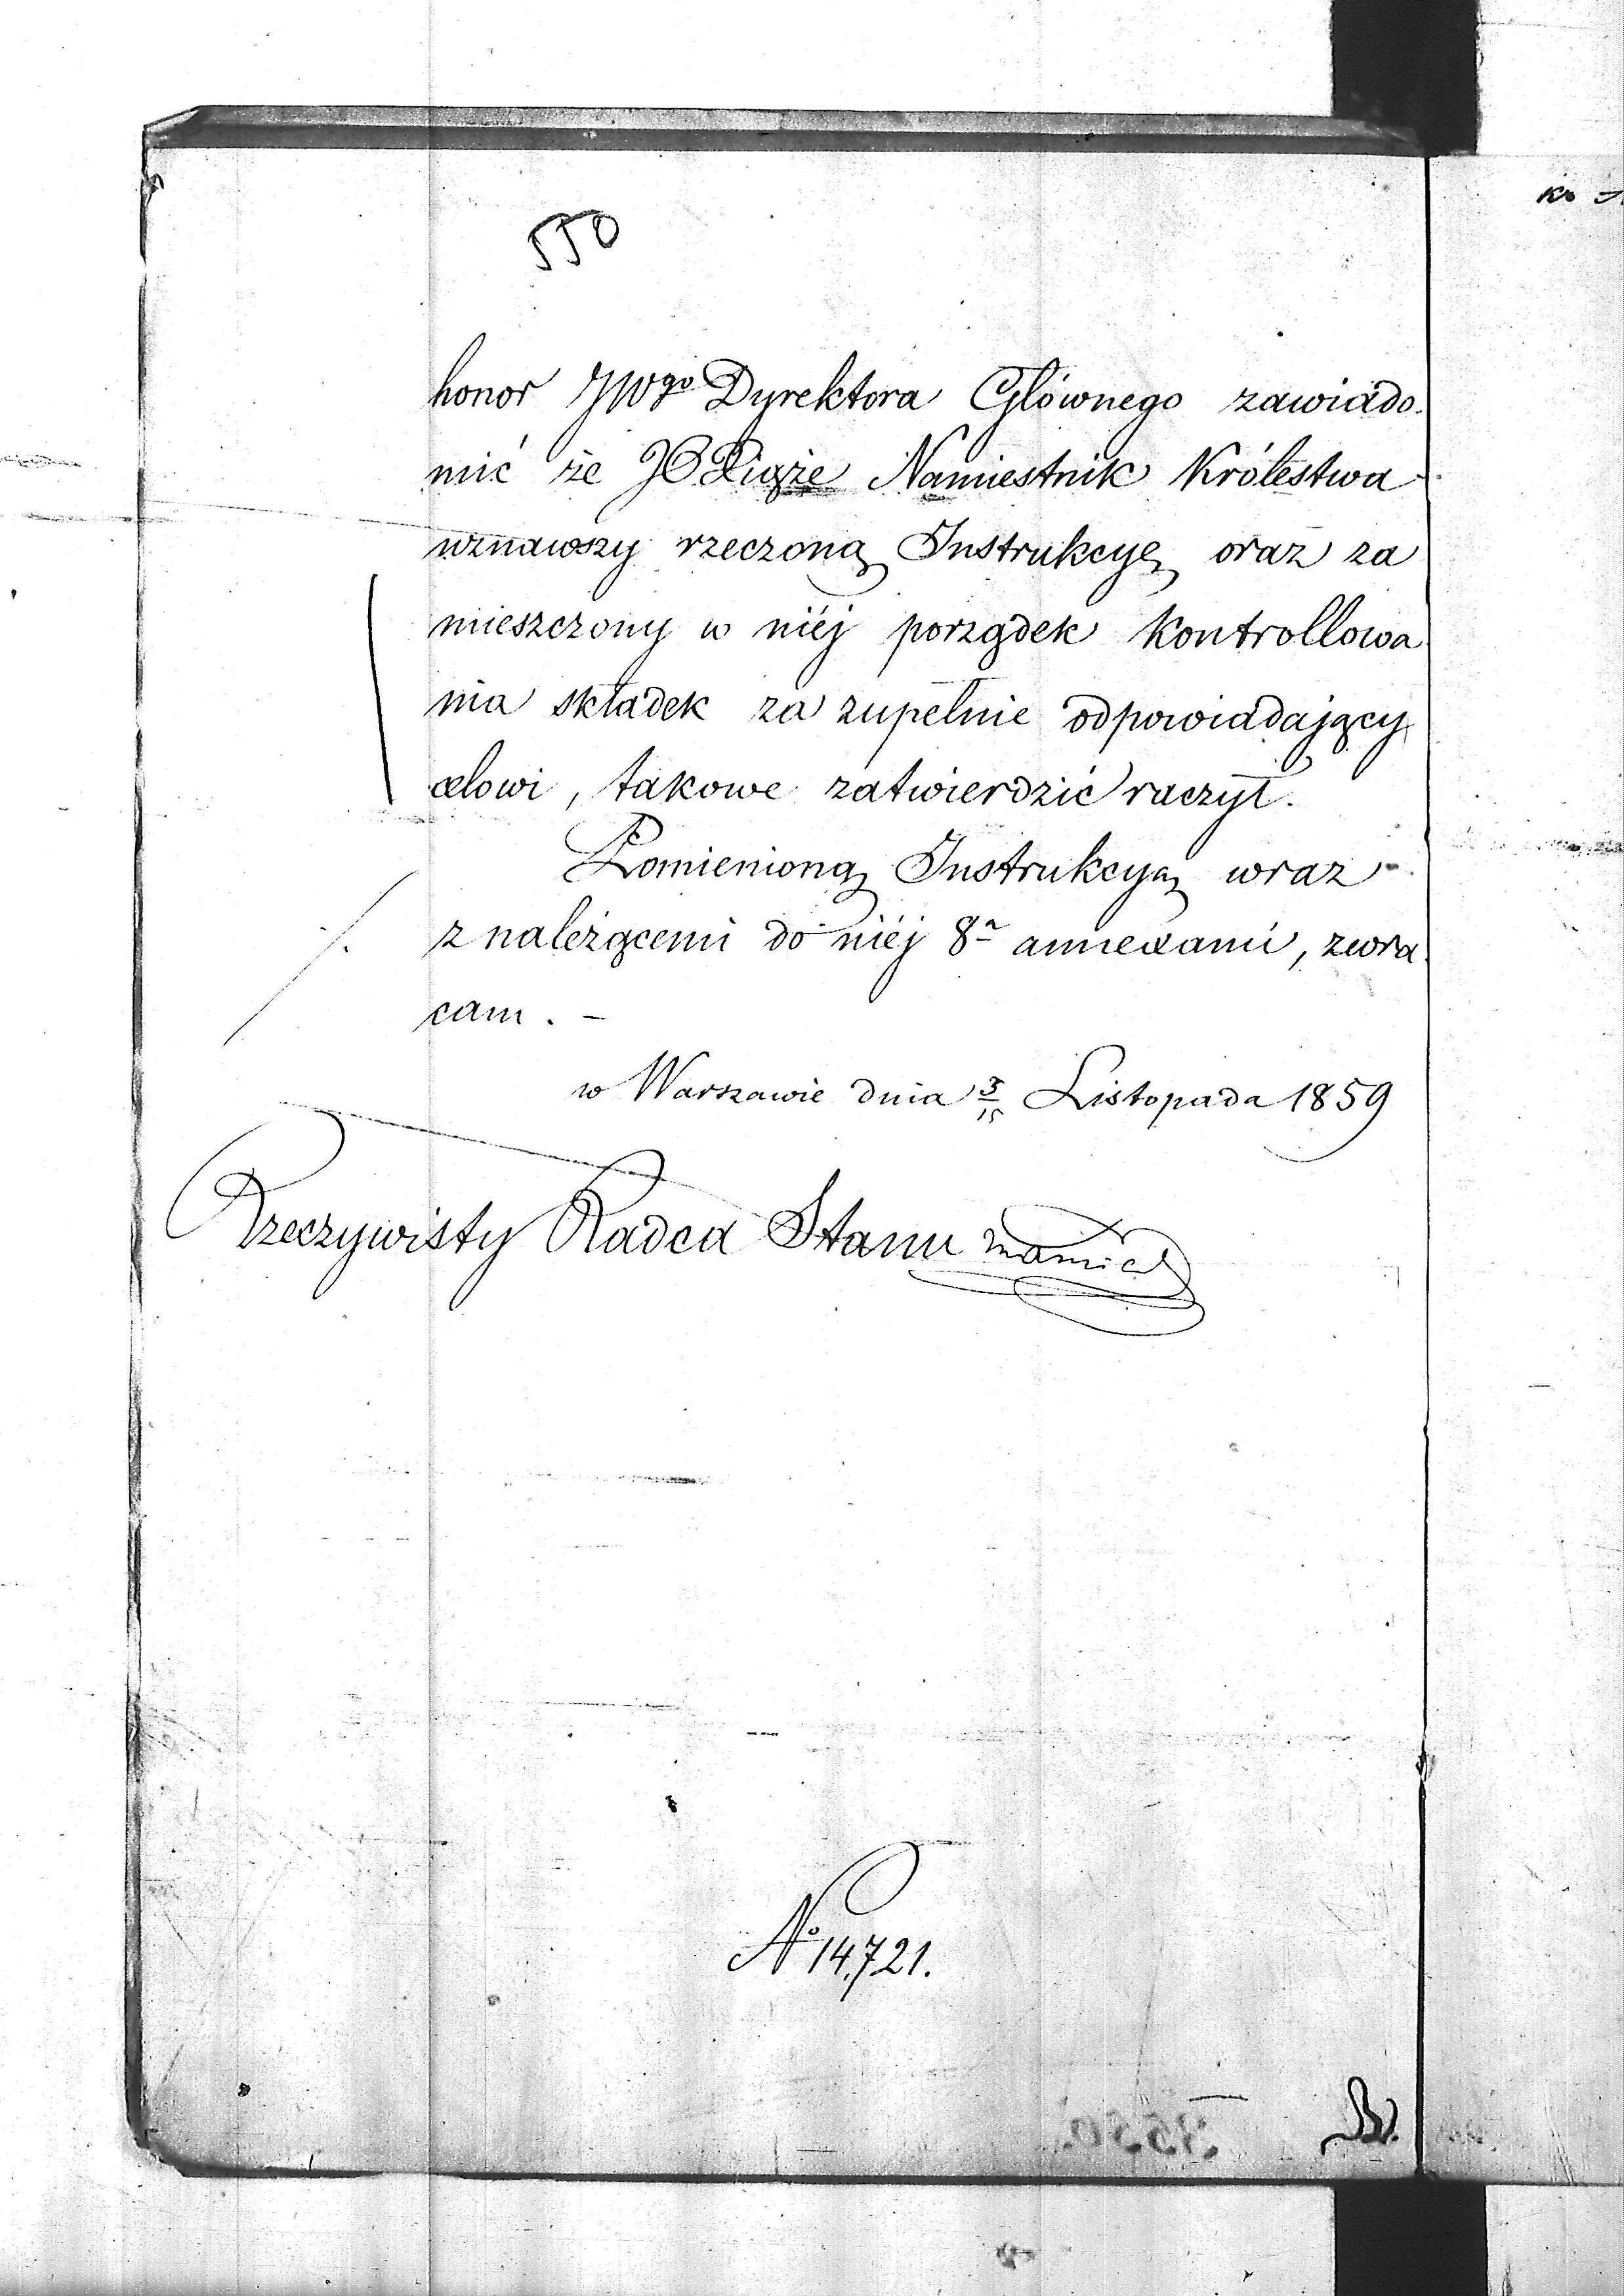 550
honor JWgo Dyrektora Głównego zawiado
mić że JO Xiąże Namiestnik Królestwa
uznawszy rzeczoną Instrukcyę oraz za
mieszczony w niéj porządek kontrollowa
nia składek za zupełnie odpowiadający
celowi, takowe zatwierdzić raczył.
Pomienioną Instrukcyą wraz
z należącemi do niéj 8a annexami, zwra
cam. –
w Warszawie dnia 3/15 Listopada 1859
Rzeczywisty Radca Stanu
No 14,721.